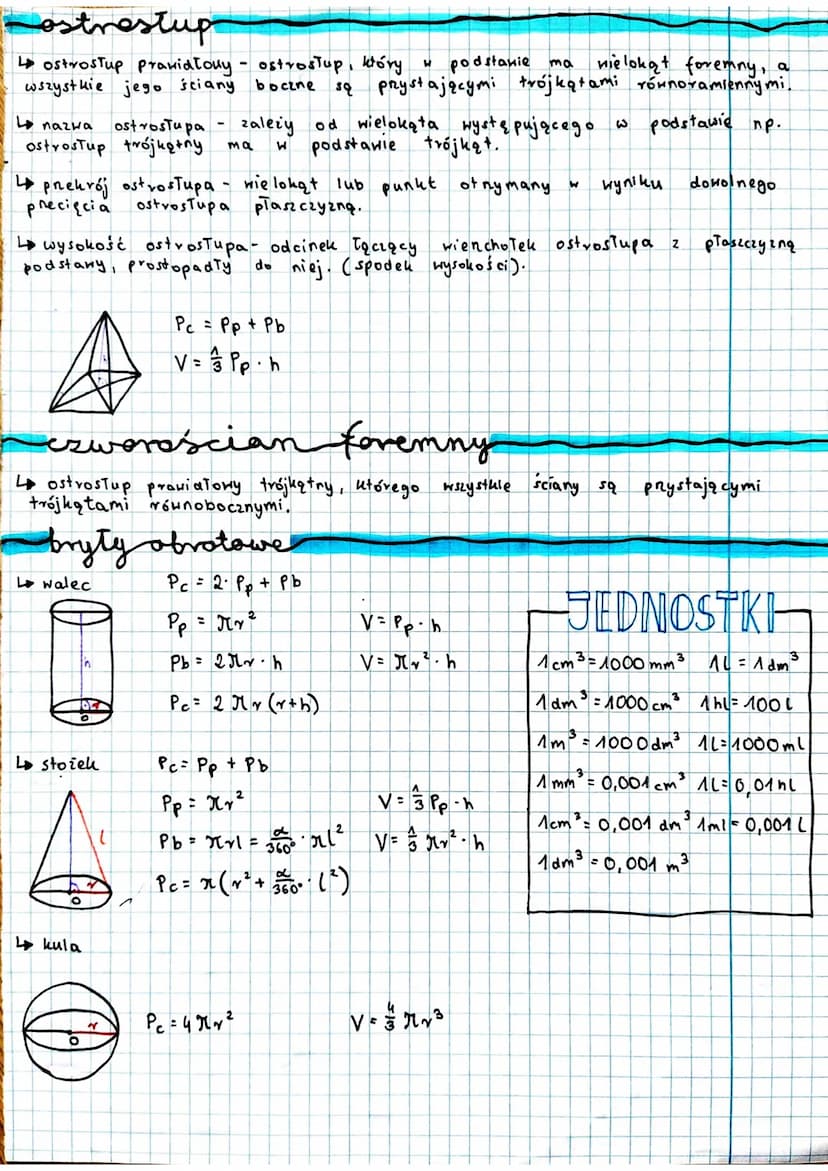 ostrosłup
↳ ostrosłup prawidłowy - ostrosłup, który w podstawie ma wielokąt foremny, a
wszystkie jego ściany boczne są przystającymi trójkątami równoramiennymi.
↳ nazwa ostrosłupa - zależy od wielokąta występującego w podstawie np.
ostrosłup trójkątny ma w podstawie trójkąt.
↳ przekrój ostrosłupa - wielokąt lub punkt otrzymany w wyniku dowolnego
precięcia ostrosłupa płaszczyzną.
↳ wysokość ostrosłupa - odcinek łączący wierzchołek ostrosłupa z płaszczyzną
podstawy, prostopadły do niej. (spodek wysokości).
Pc = Pp + Pb
V = 1/3 Pp · h
czworościan foremny
↳ ostrosłup prawidłowy trójkątny, którego wszystkie ściany są przystającymi
trójkątami równobocznymi.
bryły obrotowe
↳ walec
Pc = 2 · Pp + Pb
Pp = πr² V = Pp · h
Pb = 2πr · h V = πr² · h
Pc = 2πr(r+h)
h
r
o
↳ stożek
Pc = Pp + Pb
Pp = πr² V = 1/3 Pp · h
Pb = πrl = α/360° · πl² V = 1/3 πr² · h
Pc = π(r² + α/360° · l²)
l
r
o
↳ kula
Pc = 4πr² V = 4/3 πr³
r
o
JEDNOSTKI
1cm³ = 1000 mm³ 1L = 1dm³
1dm³ = 1000 cm³ 1hl = 100 l
1m³ = 1000 dm³ 1L = 1000 ml
1mm³ = 0,001 cm³ 1L = 0,01 hl
1cm³ = 0,001 dm³ 1ml = 0,001 L
1dm³ = 0,001 m³